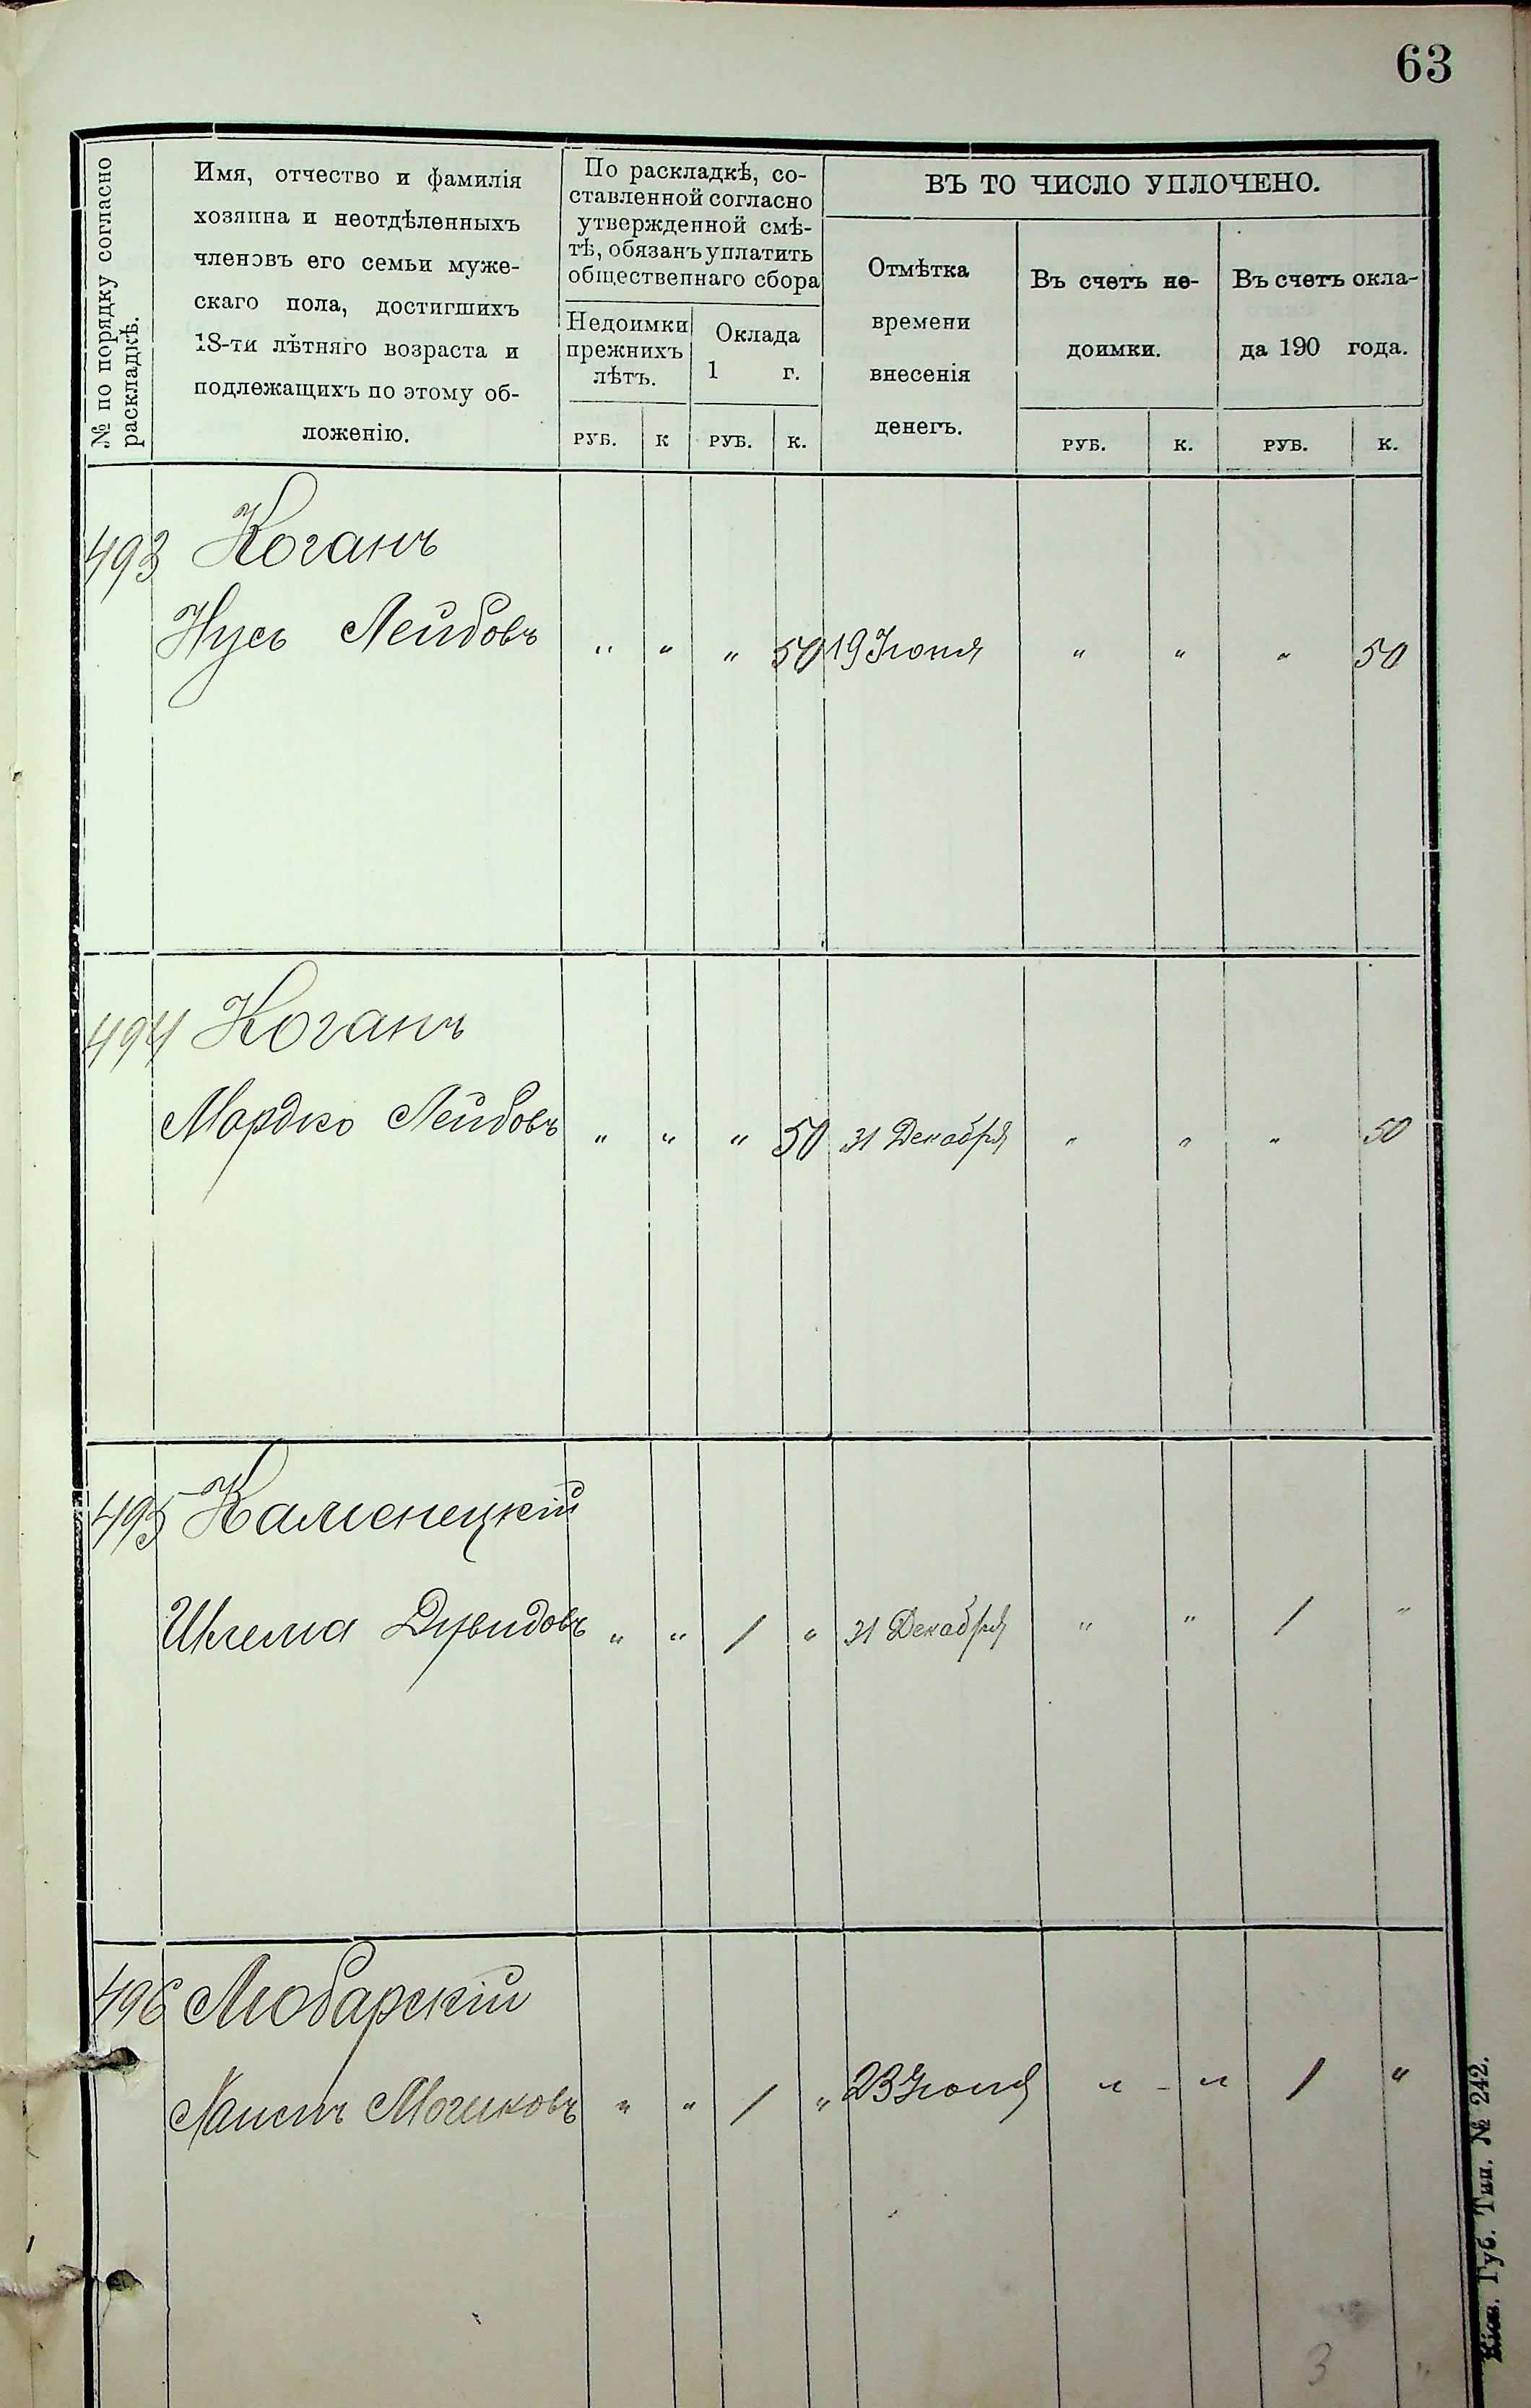 63
№ по порядку согласно
раскладкѣ.
Имя, отчество и фамилія
хозяина и неотдѣленныхъ
членовъ его семьи муже-
скаго пола, достигшихъ
18-ти лѣтняго возраста и
подлежащихъ по этому об-
ложенію.
По раскладкѣ, со-
ставленной согласно
утвержденной смѣ-
тѣ, обязанъ уплатить
общественнаго сбора
Недоимки
прежнихъ
лѣтъ.
Оклада
1 г.
ВЪ ТО ЧИСЛО УПЛОЧЕНО.
Отмѣтка
времени
внесенія
денегъ.
Въ счетъ не-
доимки.
Въ счетъ окла-
да 190 года.
РУБ. К РУБ. К. РУБ. К. РУБ. К.
493 Коганъ
Нусь Лейбовъ " " " 50 19 Іюня " " " 50
494 Коганъ
Мордко Лейбовъ " " " 50 31 Декабря " " " 50
495 Каменецкій
Шлема Дувидовъ " " 1 " 31 Декабря " " 1 "
496 Любарскій
Мошковъ " " 1 " 23 " " 1 "
3 "
Кіев. Губ. Тип. № 242.